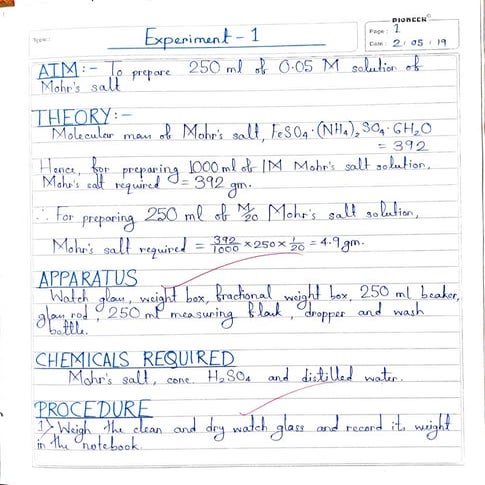 PIONEER
Experiment - 1
Page : 1
Date : 2 : 05 : 19
AIM :- To prepare 250 ml of 0.05 M solution of
Mohr's salt
THEORY :-
Molecular mass of Mohr's salt, FeSO4·(NH4)2SO4·6H2O
= 392
Hence, for preparing 1000 ml of 1M Mohr's salt solution,
Mohr's salt required = 392 gm.
∴ For preparing 250 ml of M/20 Mohr's salt solution,
Mohr's salt required = 392/1000 × 250 × 1/20 = 4.9 gm.
APPARATUS
Watch glass, weight box, fractional weight box, 250 ml beaker,
glass rod, 250 ml measuring flask, dropper and wash
bottle.
CHEMICALS REQUIRED
Mohr's salt, conc. H2SO4 and distilled water.
PROCEDURE
1> Weigh the clean and dry watch glass and record its weight
in the notebook.